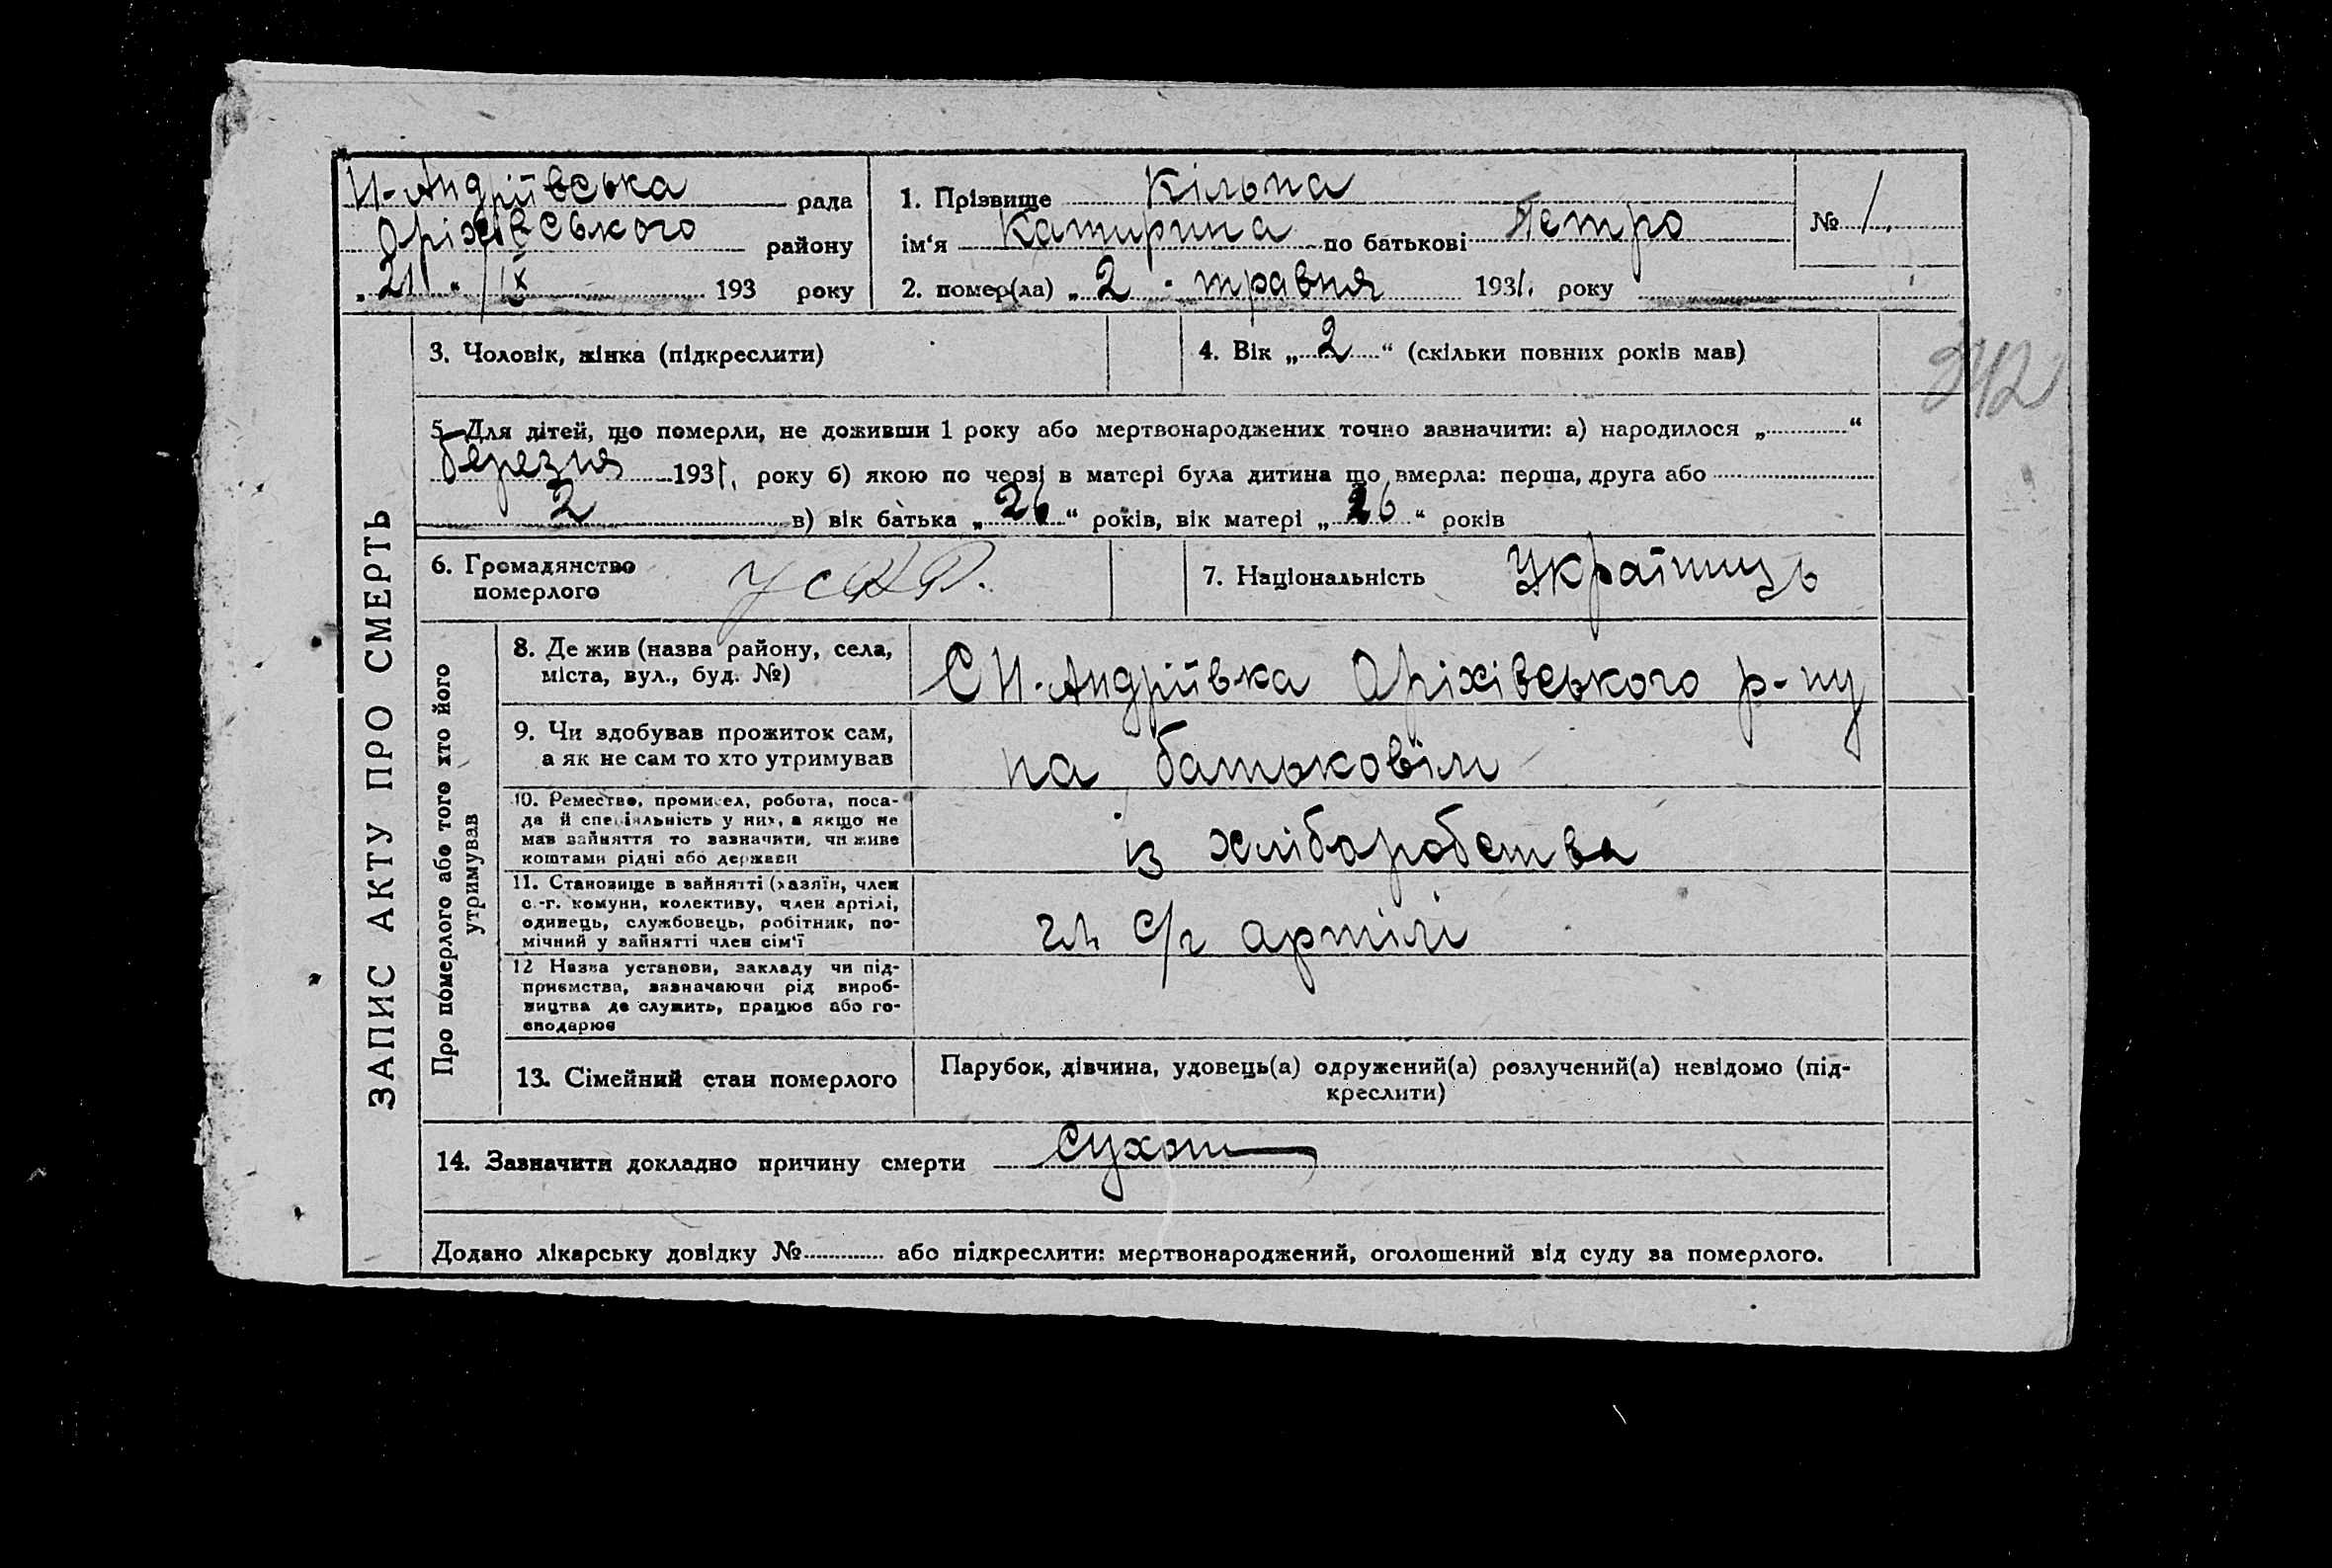 Н-Андріївська рада
Оріхівського району
„21“ IX 193 року
1. Прізвище Кільпа
ім‘я Катирина по батькові Петро
2. помер(ла) „2“ травня 1931. року
№ 1.
ЗАПИС АКТУ ПРО СМЕРТЬ
3. Чоловік, жінка (підкреслити)
4. Вік „2“ (скільки повних років мав)
242
5. Для дітей, що померли, не доживши 1 року або мертвонароджених точно зазначити: а) народилося „ “
березня 1931, року б) якою по черзі в матері була дитина що вмерла: перша, друга або
2 в) вік батька „26“ років, вік матері „26“ років
6. Громадянство
померлого УСРР.
7. Національність Українць
Про померлого або того хто його
утримував
8. Де жив (назва району, села,
міста, вул., буд. №)
С Н-Андріївка Оріхівського р-ну
9. Чи здобував прожиток сам,
а як не сам то хто утримував
на батьковім
10. Ремество, промисел, робота, поса-
да й спеціяльність у них, а якщо не
мав зайняття то зазначити, чи живе
коштами рідні або держави
із хліборобства
11. Становище в зайнятті (хазяїн, член
с.-г. комуни, колективу, член артілі,
одинець, службовець, робітник, по-
мічний у зайнятті член сім‘ї
чл с/г артілі
12 Назва установи, закладу чи під-
приємства, зазначаючи рід вироб-
ництва де служить, працює або го-
сподарює
13. Сімейний стан померлого
Парубок, дівчина, удовець(а) одружений(а) розлучений(а) невідомо (під-
креслити)
14. Зазначити докладно причину смерти Сухот
Додано лікарську довідку № або підкреслити: мертвонароджений, оголошений від суду за померлого.